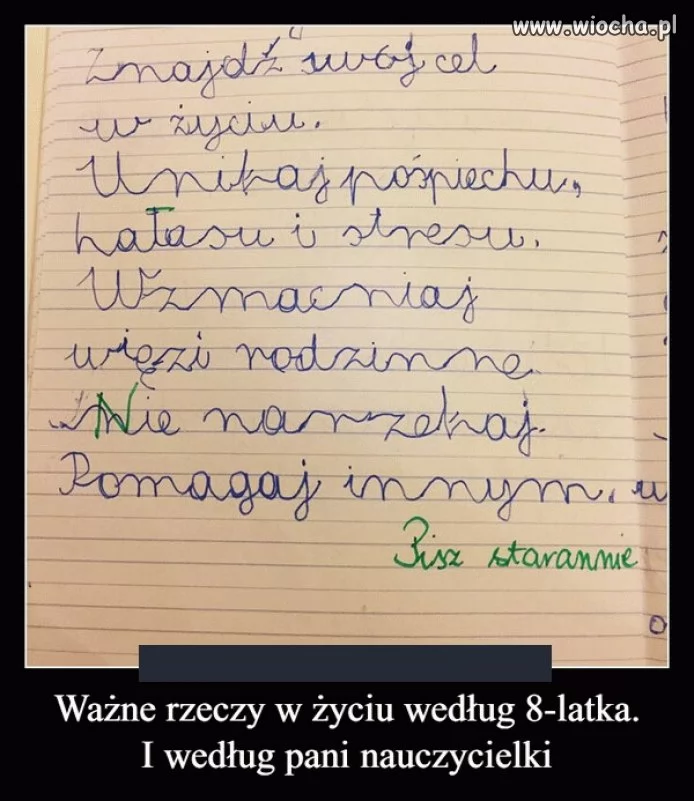 www.wiocha.pl
Znajdź swój cel
w życiu.
Unikaj pośpiechu,
hałasu i stresu.
Wzmacniaj
więzi rodzinne.
Nie narzekaj.
Pomagaj innym. w
Pisz starannie
o
Ważne rzeczy w życiu według 8-latka.
I według pani nauczycielki